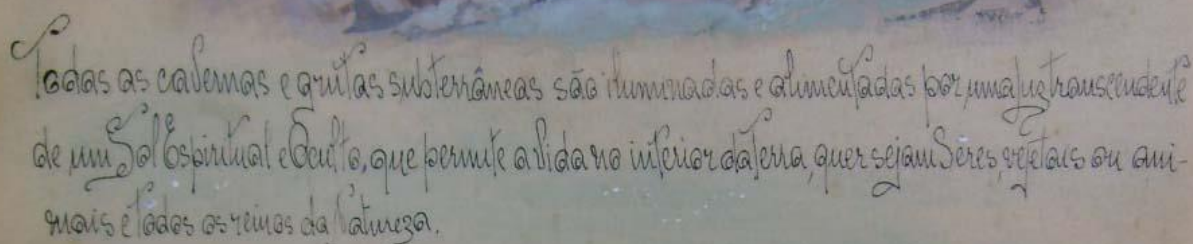 Todas as cavernas e grutas subterrâneas são iluminadas e alimentadas por uma luz transcendente
de um Sol Espiritual e Oculto, que permite a Vida no interior da Terra, quer sejam Seres, vejetais ou ani-
mais e todos os reinos da Natureza.